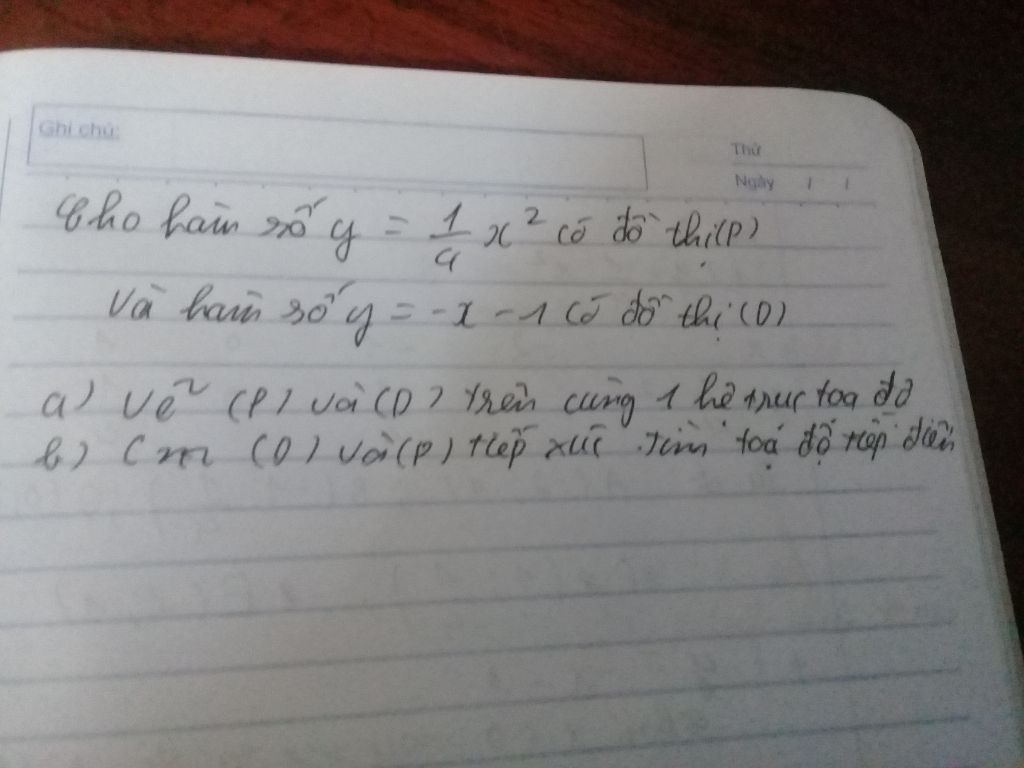 Ghi chú:
Thứ
Ngày / /
Cho hàm số y = 1/4 x² có đồ thị (P)
Và hàm số y = -x - 1 có đồ thị (D)
a) Vẽ (P) và (D) trên cùng 1 hệ trục toạ độ
b) Cm (D) và (P) tiếp xúc. Tìm toạ độ tiếp điểm